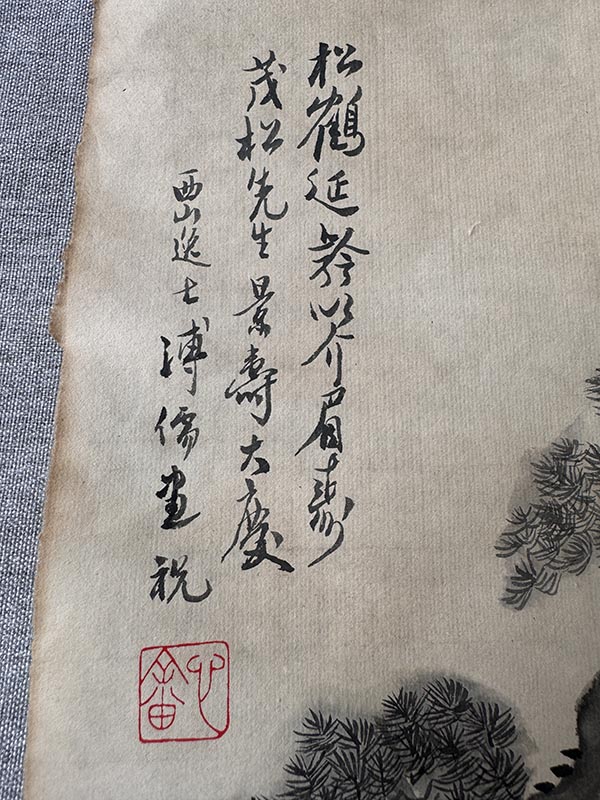 松鶴延齡以介眉壽
茂松先生景壽大慶
西山逸士溥儒画祝